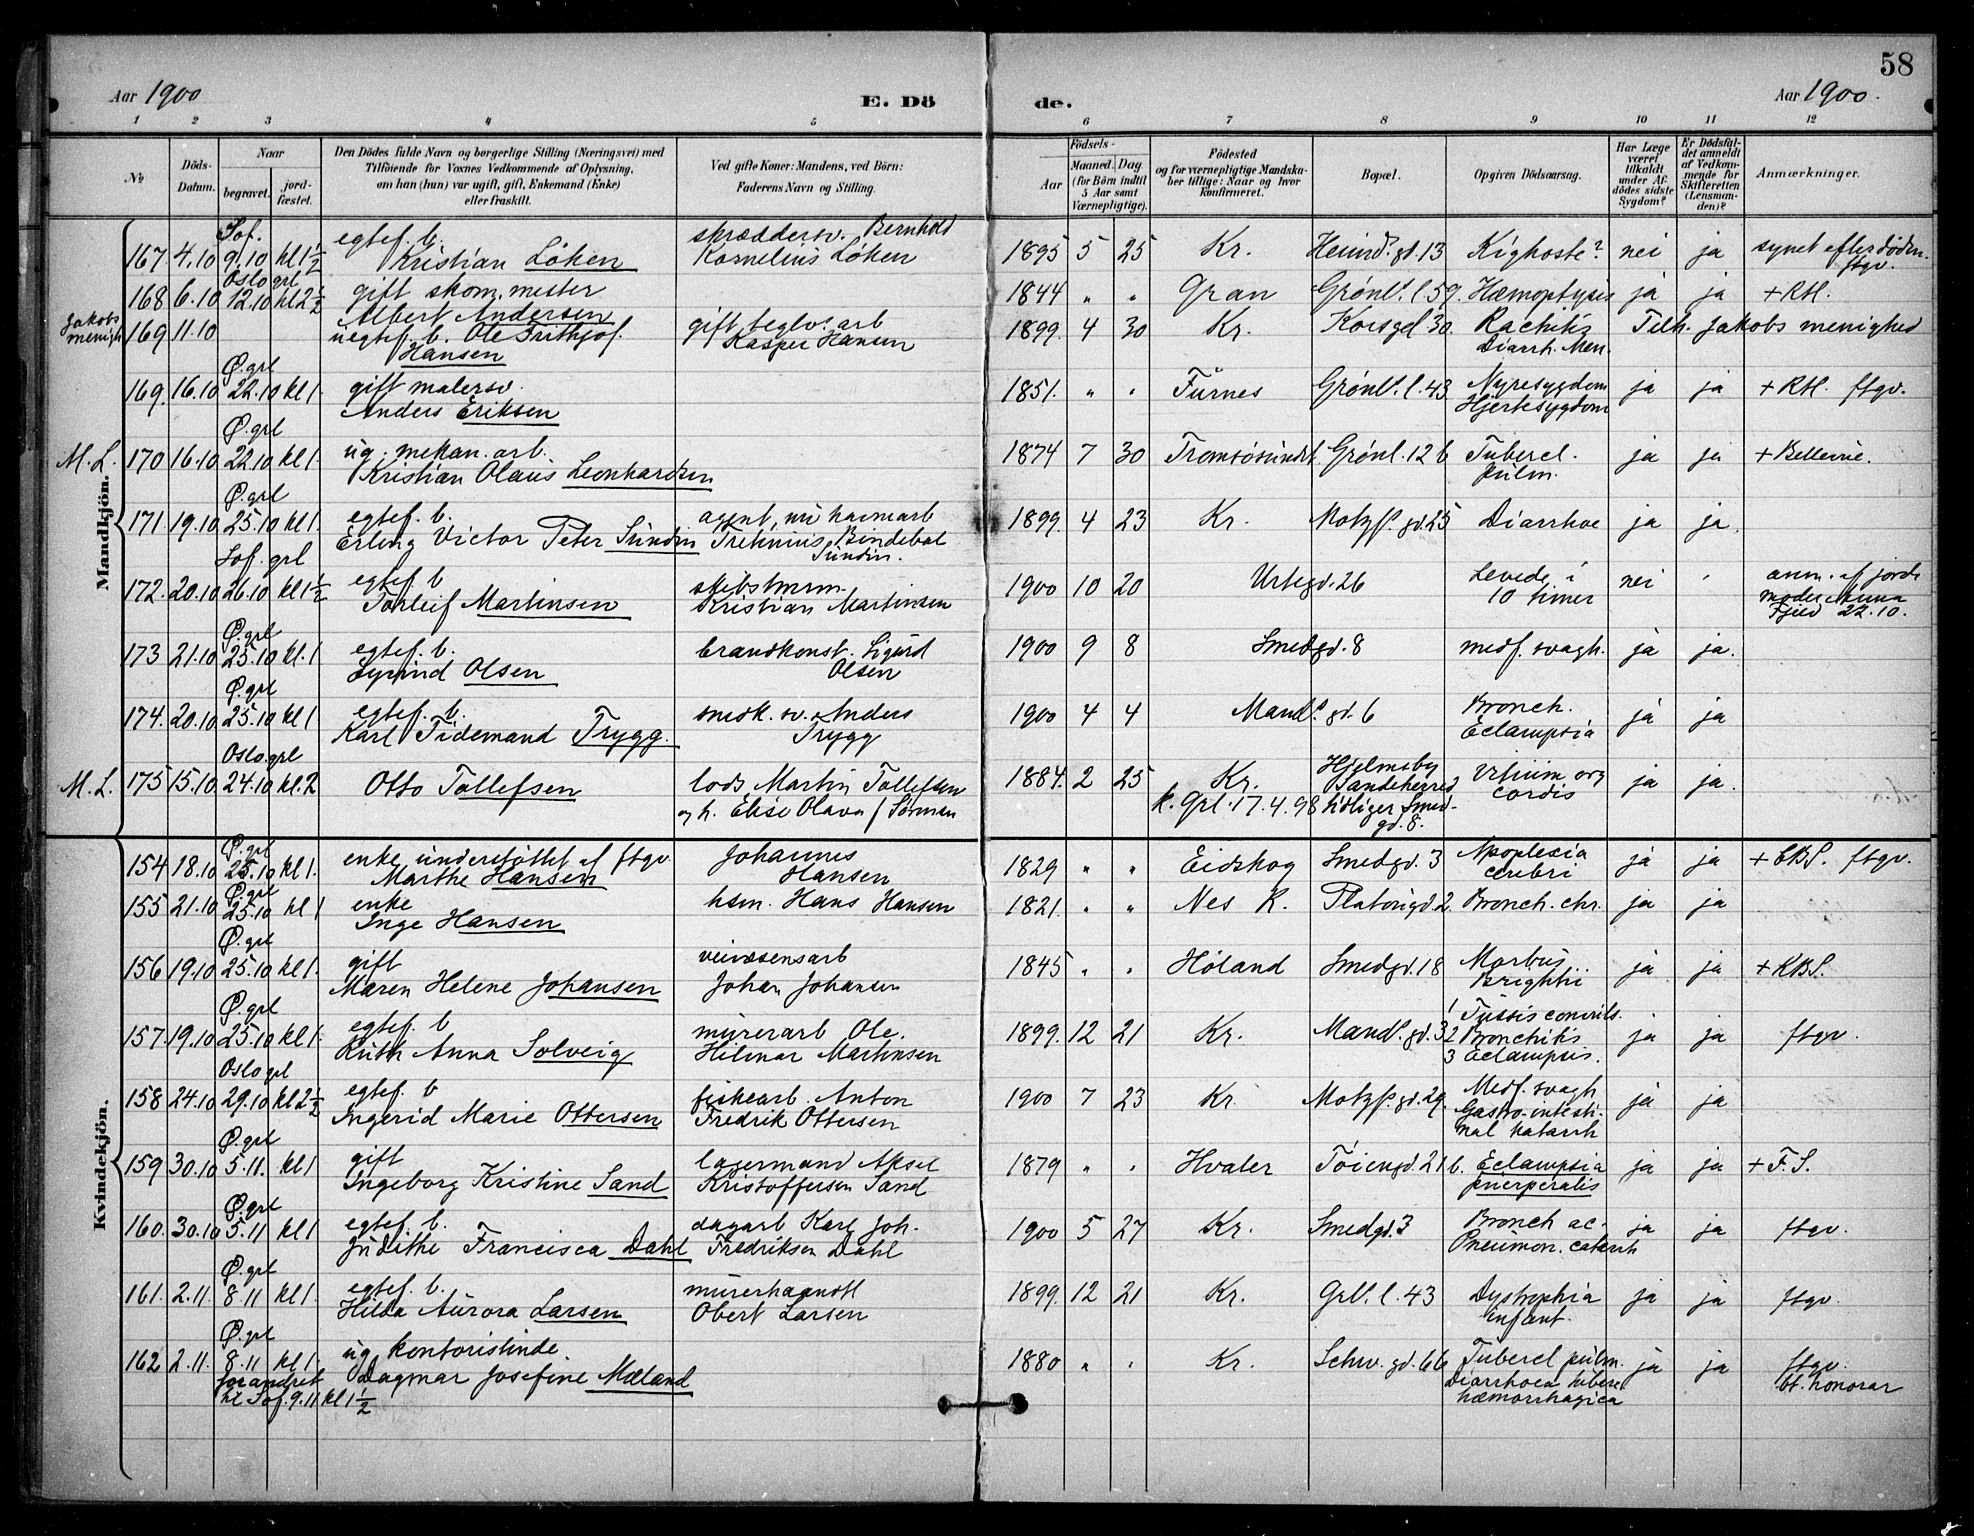 58
Aar 1900
E. Dö
de.
Aar 1900.
1 2 3 4 5 6 7 8 9 10 11 12
№
Döds-
Datum.
Naar
begravet.
jord-
fæstet.
Den Dödes fulde Navn og borgerlige Stilling (Næringsvei) med
Tilföiende for Voxnes Vedkommende af Oplysning,
om han (hun) var ugift, gift, Enkemand (Enke)
eller fraskilt.
Ved gifte Koner: Mandens, ved Börn:
Faderens Navn og Stilling.
Födsels-
Aar
Maaned.
Dag
(for Börn indtil
5 Aar samt
Værnepligtige).
Födested
og for værnepligtige Mandska-
ber tillige: Naar og hvor
konfirmeret.
Bopæl.
Opgiven Dödsaarsag.
Har Læge
været
tilkaldt
under Af-
dödes sidste
Sygdom?
Er Dödsfal-
det anmeldt
af Vedkom-
mende for
Skifteretten
(Lensman-
den)?
Anmærkninger.
Mandkjön.
Sof.
egtef. b. skræddersv. Bernhold
167 4.10 9.10 kl 1½ Kristian Löken Kornelius Löken 1895 5 25 Kr. Heimd. gd. 13 Kighoste? nei ja synet efter döden.
ftgv.
Oslo grl
168 6.10 12.10 kl 2½ gift skom. mester 1844 " " Gran Grönl. l. 59. Hæmoptysis ja ja + RH.
Albert Andersen
Jakobs
menigh
169 11.10 uegtef. b. Ole Frithjof. gift teglv. arb 1899. 4 30 Kr. Korsgd 30. Rachitis Tilh. Jakobs menighed
Hansen Kasper Hansen Diarrh. Men.
Ø. grl
169. 16.10 22.10 kl 1. gift malersv. 1851. " " Furnes Grönl. l. 43 Nyresygdom ja ja + RH. ftgv.
Anders Eriksen Hjertesygdom
Ø. grl
M. L. 170 16.10 22.10 kl 1. ug. mekan. arb. 1874 7 30 Tromsösundet Grönl. 12 b Tubercl. ja ja + Bellevue.
Kristian Olaus Leonhardsen pulm.
Ø. grl
171. 19.10 25.10 kl 1. egtef. b. agent, nu havnearb 1899. 4 23 Kr. Motzf. gd. 25 Diarrhoe ja ja.
Erling Victor Peter Sundin Bendebal
Sundin.
Sof. grl
172. 20.10 26.10 kl 1½ egtef. b skibstmrm. 1900 10 20 Urtegd. 26 Levede i nei anm. af jorde
Torleif Martinsen Kristian Martinsen 10 timer moder Anna
Fjeld 22.10.
Ø. grl
173 21.10 25.10 kl. 1 egtef. b. brandkonst. Sigurd 1900 9 8 Smedgd. 8 medf. svagh. ja ja.
Eyvind Olsen Olsen
Ø. grl
174. 20.10 25.10 kl 1 egtef. b. snedk. sv. Anders 1900 4 4 Mand. gd. 6 Bronch. ja ja
Karl Tidemand Trygg. Trygg Eclampsia
Oslo. grl
M. L. 175 15.10 24.10 kl. 2 Otto Tollefsen lods Martin Tollefsen 1884. 2 25 Kr. Hjelmsby Vitium org ja ja.
og h. Elise Olava f Sörensen k. Grl. 17.4.98 Sandeherred cordis
tidliger Smed-
gd. 8.
Kvindekjön.
Ø. grl
154 18.10 25.10 kl 1. enke understöttet af ftgv. Johannes 1829 " " Eidskog Smedgd. 3 Apoplexia ja ja ftgv.
Marthe Hansen Hansen cerebri
Ø. grl
155 21.10 25.10 kl 1 enke hsm. Hans Hansen 1821. " " Nes R. Platougd. 2. Bronch. chr. ja ja
Inge Hansen
Ø. grl
156 19.10 25.10 kl 1. gift veivæsensarb 1845 " " Höland Smedgd. 18 Morbus ja ja + KBS.
Maren Helene Johansen Johan Johansen Brightii
Ø. grl
157. 19.10 25.10 kl 1. egtef. b murerarb Ole. 1899. 12 21 Kr. Mand. gd. 32 1 Tussis convuls. ja ja ftgv.
Ruth Anna Solveig Hilmar Martinsen 2 Bronchitis
3 Eclampsis.
Oslo grl
158 24.10 29.10 kl 2½ egtef. b fiskearb. Anton 1900 7 23 Kr. Motzf. gd. 29. Medf. svagh ja ja
Ingerid Marie Ottersen Fredrik Ottersen Gastro-intesti-
nal katarrh
Ø. grl
159 30.10 5.11. kl 1 gift lagermand Aksel 1879 " " Hvaler Töiengd. 21 b. Eclampsia ja ja + F. S.
Ingeborg Kristine Sand Kristoffersen Sand puerperalis
Ø. grl
160. 30.10 5.11 kl 1 egtef. b. dagarb Karl Joh. 1900 5 27 Kr. Smedgd. 3 Bronch ac. ja ja ftgv.
Judithe Francisca Dahl Fredriksen Dahl Pneumon. catarrh
Ø. grl
161. 2.11. 8.11 kl 1. egtef. b. murerhaandl 1899. 12 21 Kr. Grl. l. 43 Dystrophia ja ja ftgv.
Hilda Aurora Larsen Obert Larsen infant.
Ø. grl
162 2.11. 8.11 kl 1. ug. kontoristinde 1880 " " Kr. Schw. gd. 66 Tubercl pulm. ja ja ftgv.
forandret Dagmar Josefine Mæland Diarrhoea bt. honorar
til Sof. 9.11 kl 1½ hæmorrhagica